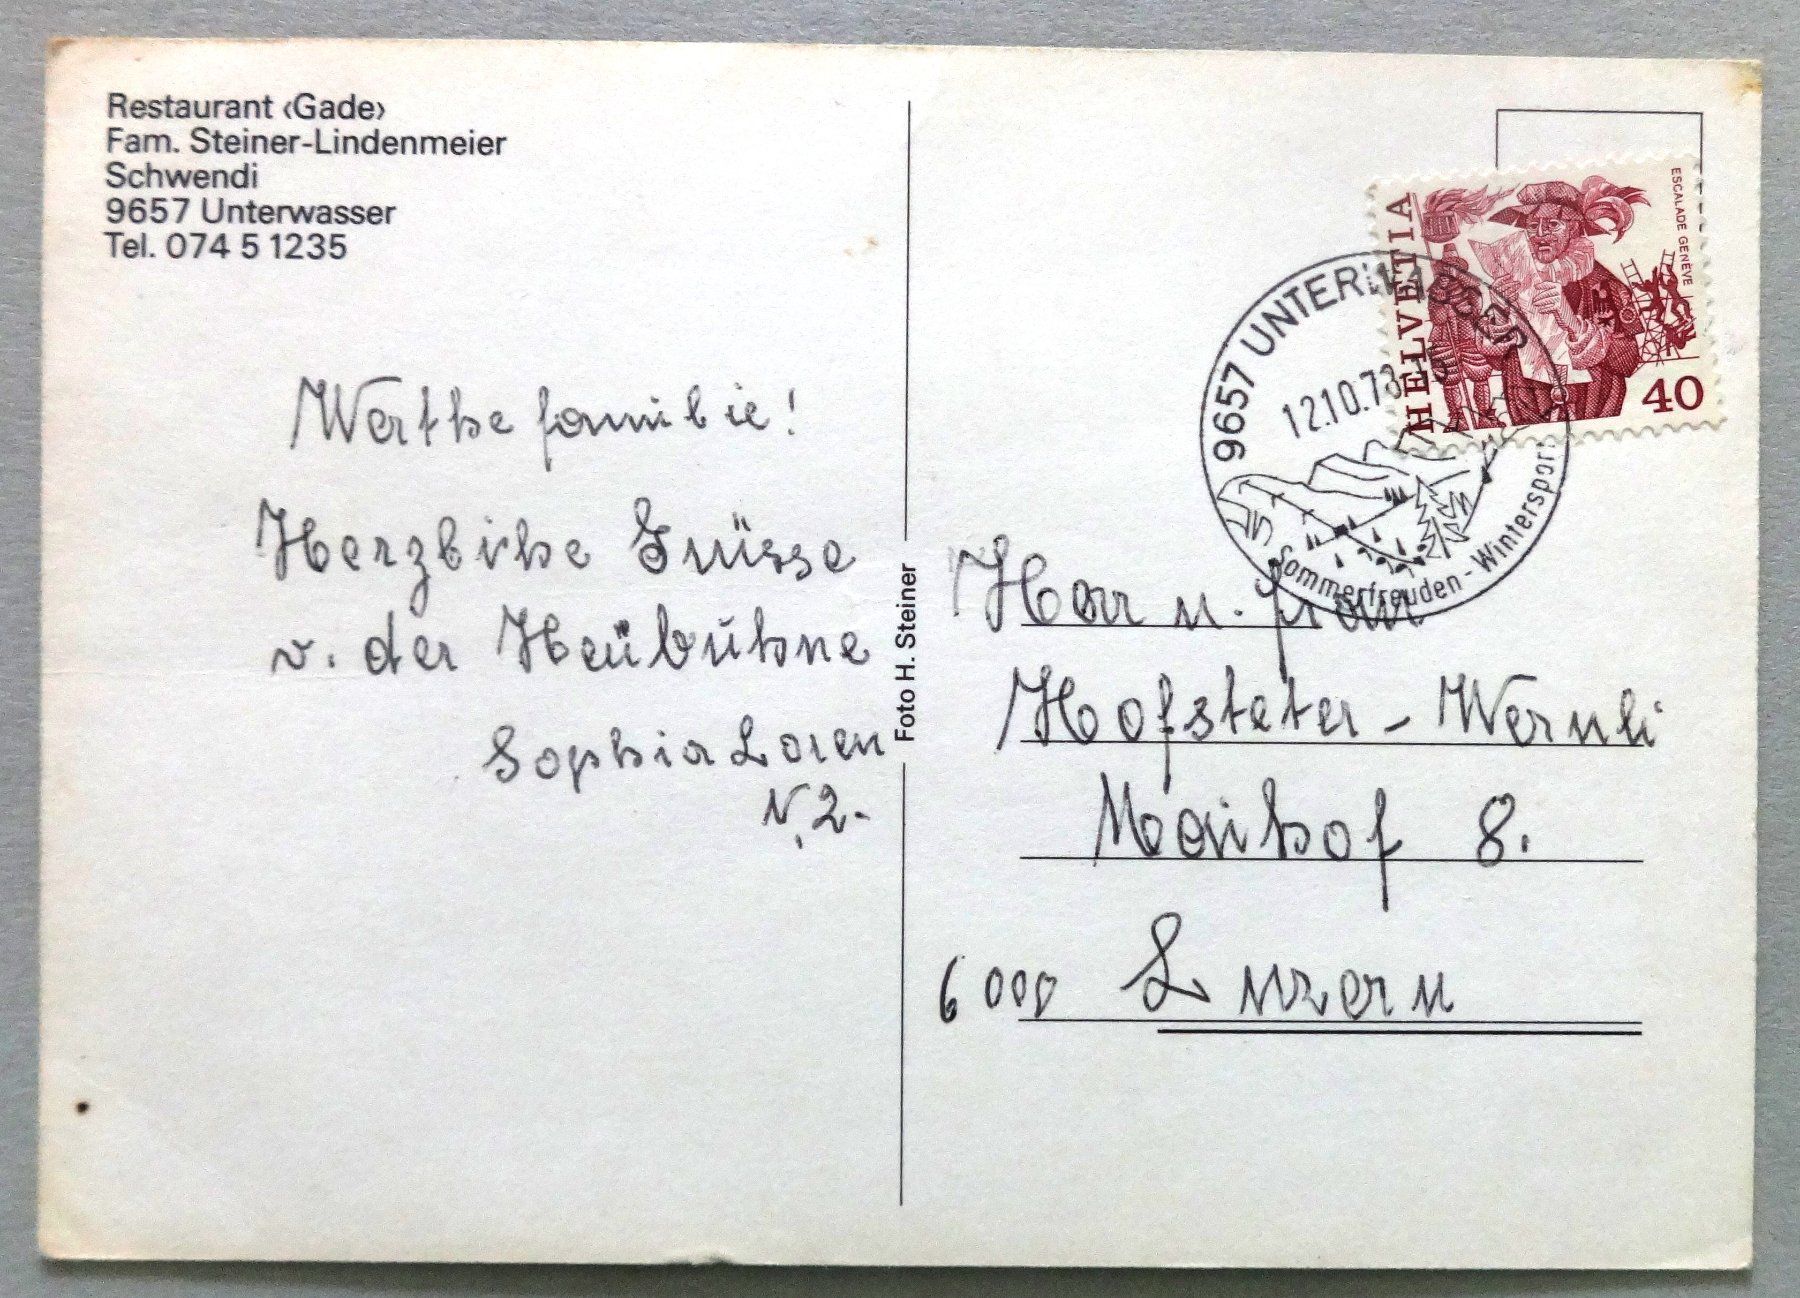 Restaurant ‹Gade›
Fam. Steiner-Lindenmeier
Schwendi
9657 Unterwasser
Tel. 074 5 1235
Werthe familie!
Herzliche Grüsse
v. der Heübühne
Sophia Loren
N. 2.
Foto H. Steiner
ESCALADE GENÈVE
HELVETIA
40
9657 UNTERWASSER
12.10.78
Sommerfreuden - Wintersport
Herr u. frau
Hofsteter - Wernli
Maihof 8.
6000 Luzern